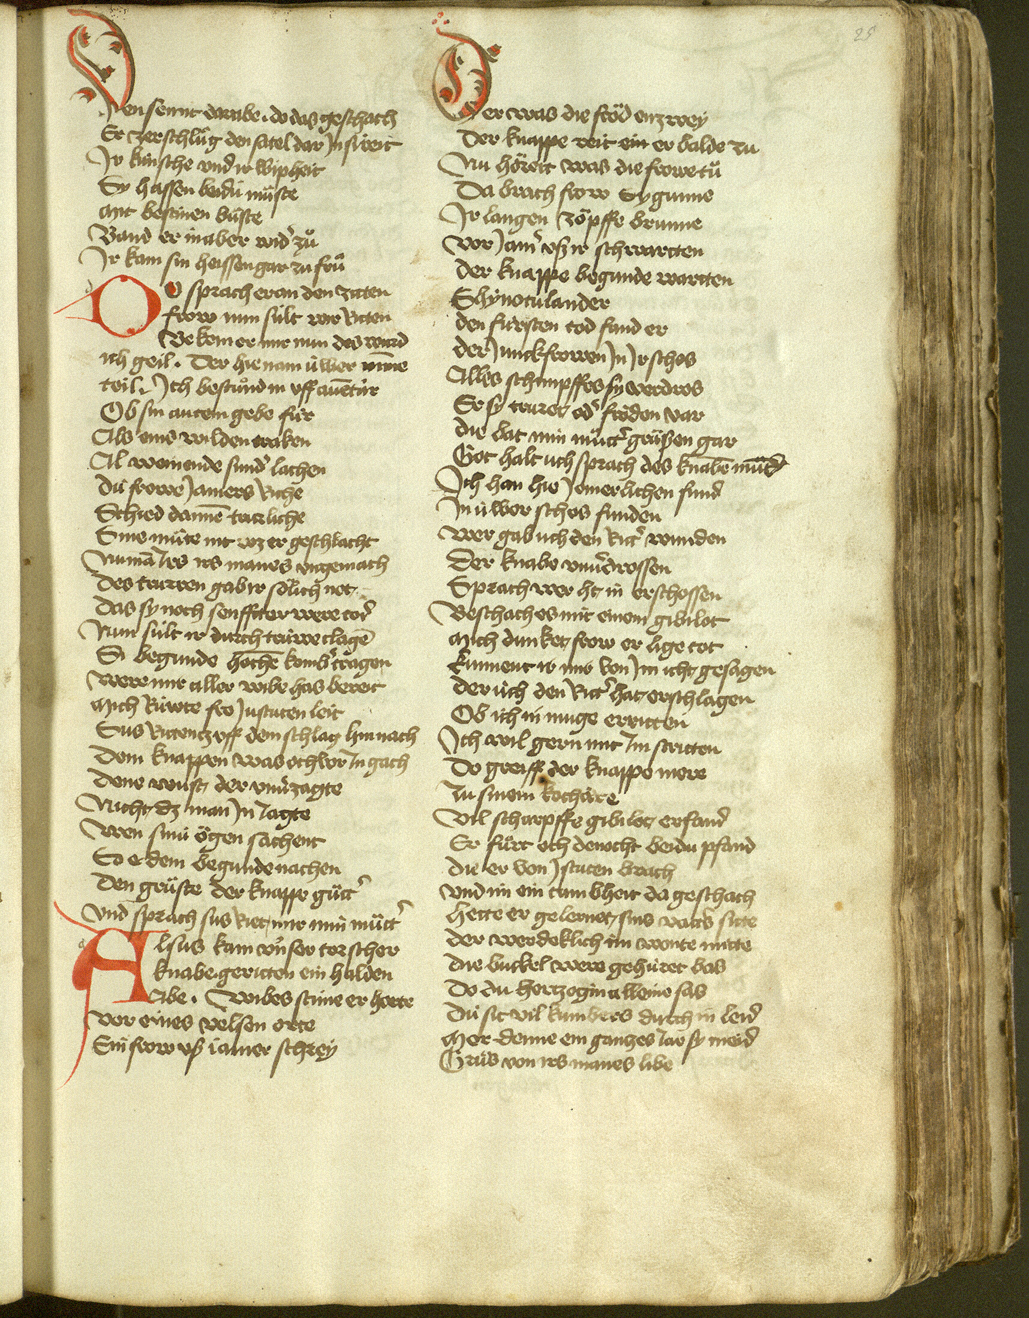 25
Den sennt darabe. do das geschach
Er zerschlůg den satel dar Jn streit
Jr künsche vnd ir wipheit
Sy hassen beidu můste
mit bestinen büste
Band er in aber wid' zů
Jr kam sin heissen gar zu frů
DO sprach er an den ziten
frow nun sült wir Riten
Bekom er mir nun des wurd
ich geil. Der hie nam ǘwer mīne
teil. Jch bestůnd in vff auētúr
Ob sin autem gebe fúr
Als eins wilden traken
Al weinende sund' lachen
Dú frowe Jamers Riche
Schied dannē trurliche
Sine můte nit wz er geschlacht
Numā Jrs irs manes vngemach
Des truwen gab ir sölich not
Das sy noch senffter were tod'
Nun súlt ir durch trúwe clagē
Si begunde hochē komb' tragen
Were mir aller wibe has bereit
mich Rúwte fro Justuten leit
Sus Ritten vff dem schlag hin nach
Dem knappen was och vor Jn gach
Dene wust der vnu'zagte
Nicht dz man Jn Jagte
Wen sinú ögen sachent
So e dem begunde nachen
Den grůste der knappe gůt'
Vnd sprach sus Riet mir min můt'
Alsus kam vnser torscher
knabe geritten ein halden
Abe. Wibes stime er horte
vor eines velsen orte
Ein frow vß iamer schrey
Der was die fröd enzwey
Der knappe reit ein er balde zu
Nu höreit was die frowe tů
Da brach frow Sygunne
Jr langen zöpffe brunne
Vor Jam' vß ir schwartten
Der knappe begunde wartten
Schynotulander
den fúrsten tod fand er
der Junckfrowen Jn Jr schos
Alles schimpffes sy verdros
Er sy truret od' fröden var
die bat min můt' grüßen gar
Got halt uch sprach des knabē můd'
Jch han hie Jomerlichen fund'
Jn ú́wer schos funden
Wer gab uch den Rit' wunden
Der knabe vnu'drossen
Sprach wer ht in erschossen
Beschach es mit einem gibilot
Mich dunket frow er lige tot
kúnnent ir mir von Jm icht gesagen
Der úch den Rit' hat erschlagen
Ob ich in muge erritten
Jch wil gern mit Jm stritten
Do greiff der knappe mere
Zu sinem kochåre
Vil scharpffe gibilot erfand'
Er fůrt och denocht beidu pfand
Die er von Jstuten brach
Vnd im ein tumbheit da geschach
Hette er gelernet sins vatt's sitte
Der werdeklich im wonte mitte
Die buckel were gehúret bas
Do du hertzogin alleine sas
Dú sit vil kumbers durch in leid'
Mer denne ein gantzes Jar sy meid'
Grůs von irs manes libe